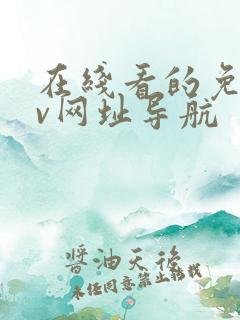 在綫看的免
v网址导航
醬油天後
未经同意禁止转载